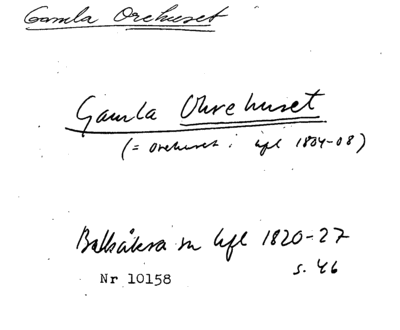 Gamla Orehuset
Gamla Ohrehuset
(= Orehuset i hfl 1804-08)
Balkåkra sn hfl 1820-27
s. 46
Nr 10158